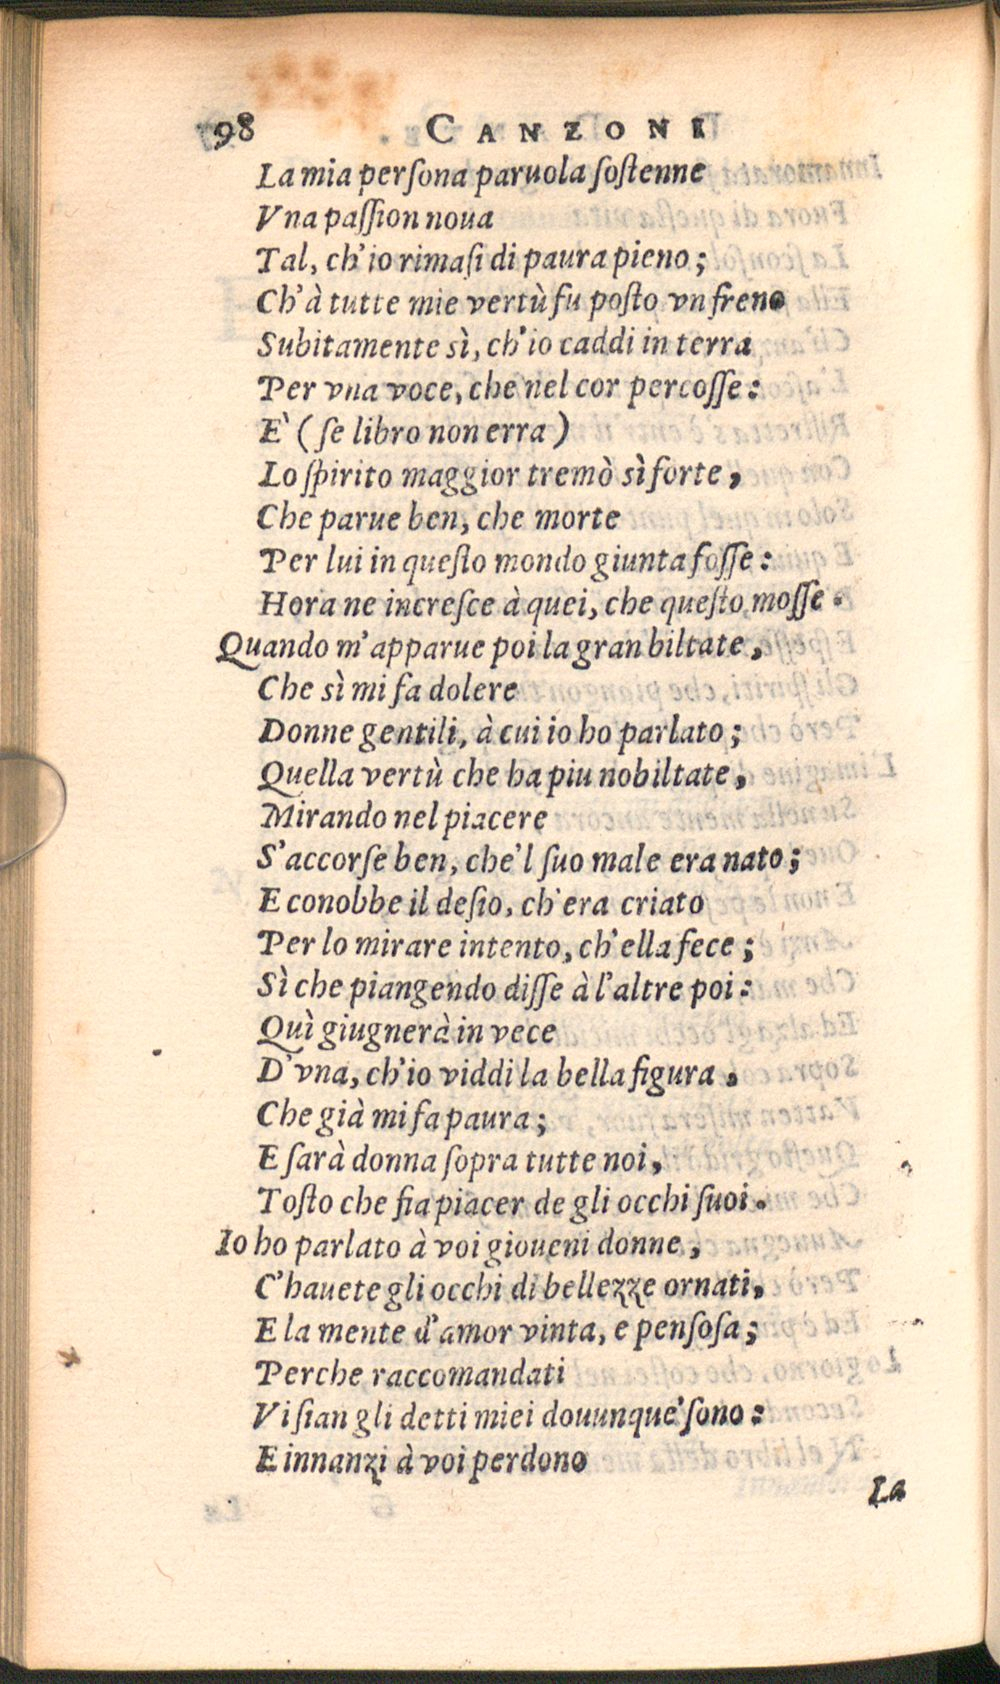 98 CANZONI
La mia perſona paruola ſoſtenne
Vna paſſion noua
Tal, ch'io rimaſi di paura pieno;
Ch'à tutte mie vertù fu poſto vn freno
Subitamente sì, ch'io caddi in terra
Per vna voce, che nel cor percoſſe:
E` (ſe libro non erra)
Lo ſpirito maggior tremò sì forte,
Che parue ben, che morte
Per lui in queſto mondo giunta foſſe:
Hora ne increſce à quei, che queſto moſſe.
Quando m'apparue poi la gran biltate,
Che sì mi fa dolere
Donne gentili, à cui io ho parlato;
Quella vertù che ha piu nobiltate,
Mirando nel piacere
S'accorſe ben, che'l ſuo male era nato;
E conobbe il deſio, ch'era criato
Per lo mirare intento, ch'ella fece;
Sì che piangendo diſſe à l'altre poi:
Quì giugnerà in vece
D'vna, ch'io viddi la bella figura,
Che già mi fa paura;
E ſarà donna ſopra tutte noi,
Toſto che fia piacer de gli occhi ſuoi.
Io ho parlato à voi gioueni donne,
C'hauete gli occhi di bellezze ornati,
E la mente d'amor vinta, e penſoſa;
Perche raccomandati
Vi ſian gli detti miei douunque'ſono:
E innanzi à voi perdono
La